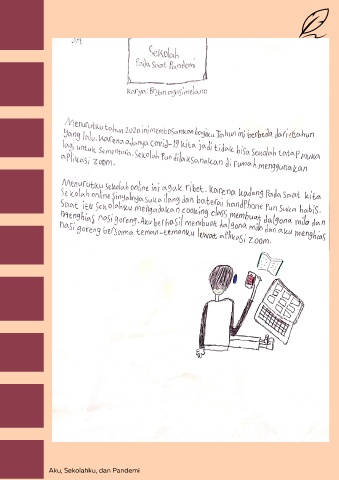 Sekolah
Pada Saat Pandemi
karya: Bryan
Menurutku tahun 2020 ini membosankan bagiku. Tahun ini berbeda dari tahun
yang lalu. karena adanya Covid-19 kita jadi tidak bisa sekolah tatap muka
lagi untuk sementara. Sekolah pun dilaksanakan di rumah menggunakan
aplikasi zoom.
Menurutku sekolah online ini agak ribet. karena kadang pada saat kita
sekolah online sinyalnya suka ilang dan baterai handphone pun suka habis.
Saat itu sekolahku mengadakan cooking class membuat dalgona milo dan
menghias nasi goreng. Aku berhasil membuat dalgona milo dan aku menghias
nasi goreng bersama teman-temanku lewat aplikasi zoom.
Aku, Sekolahku, dan Pandemi